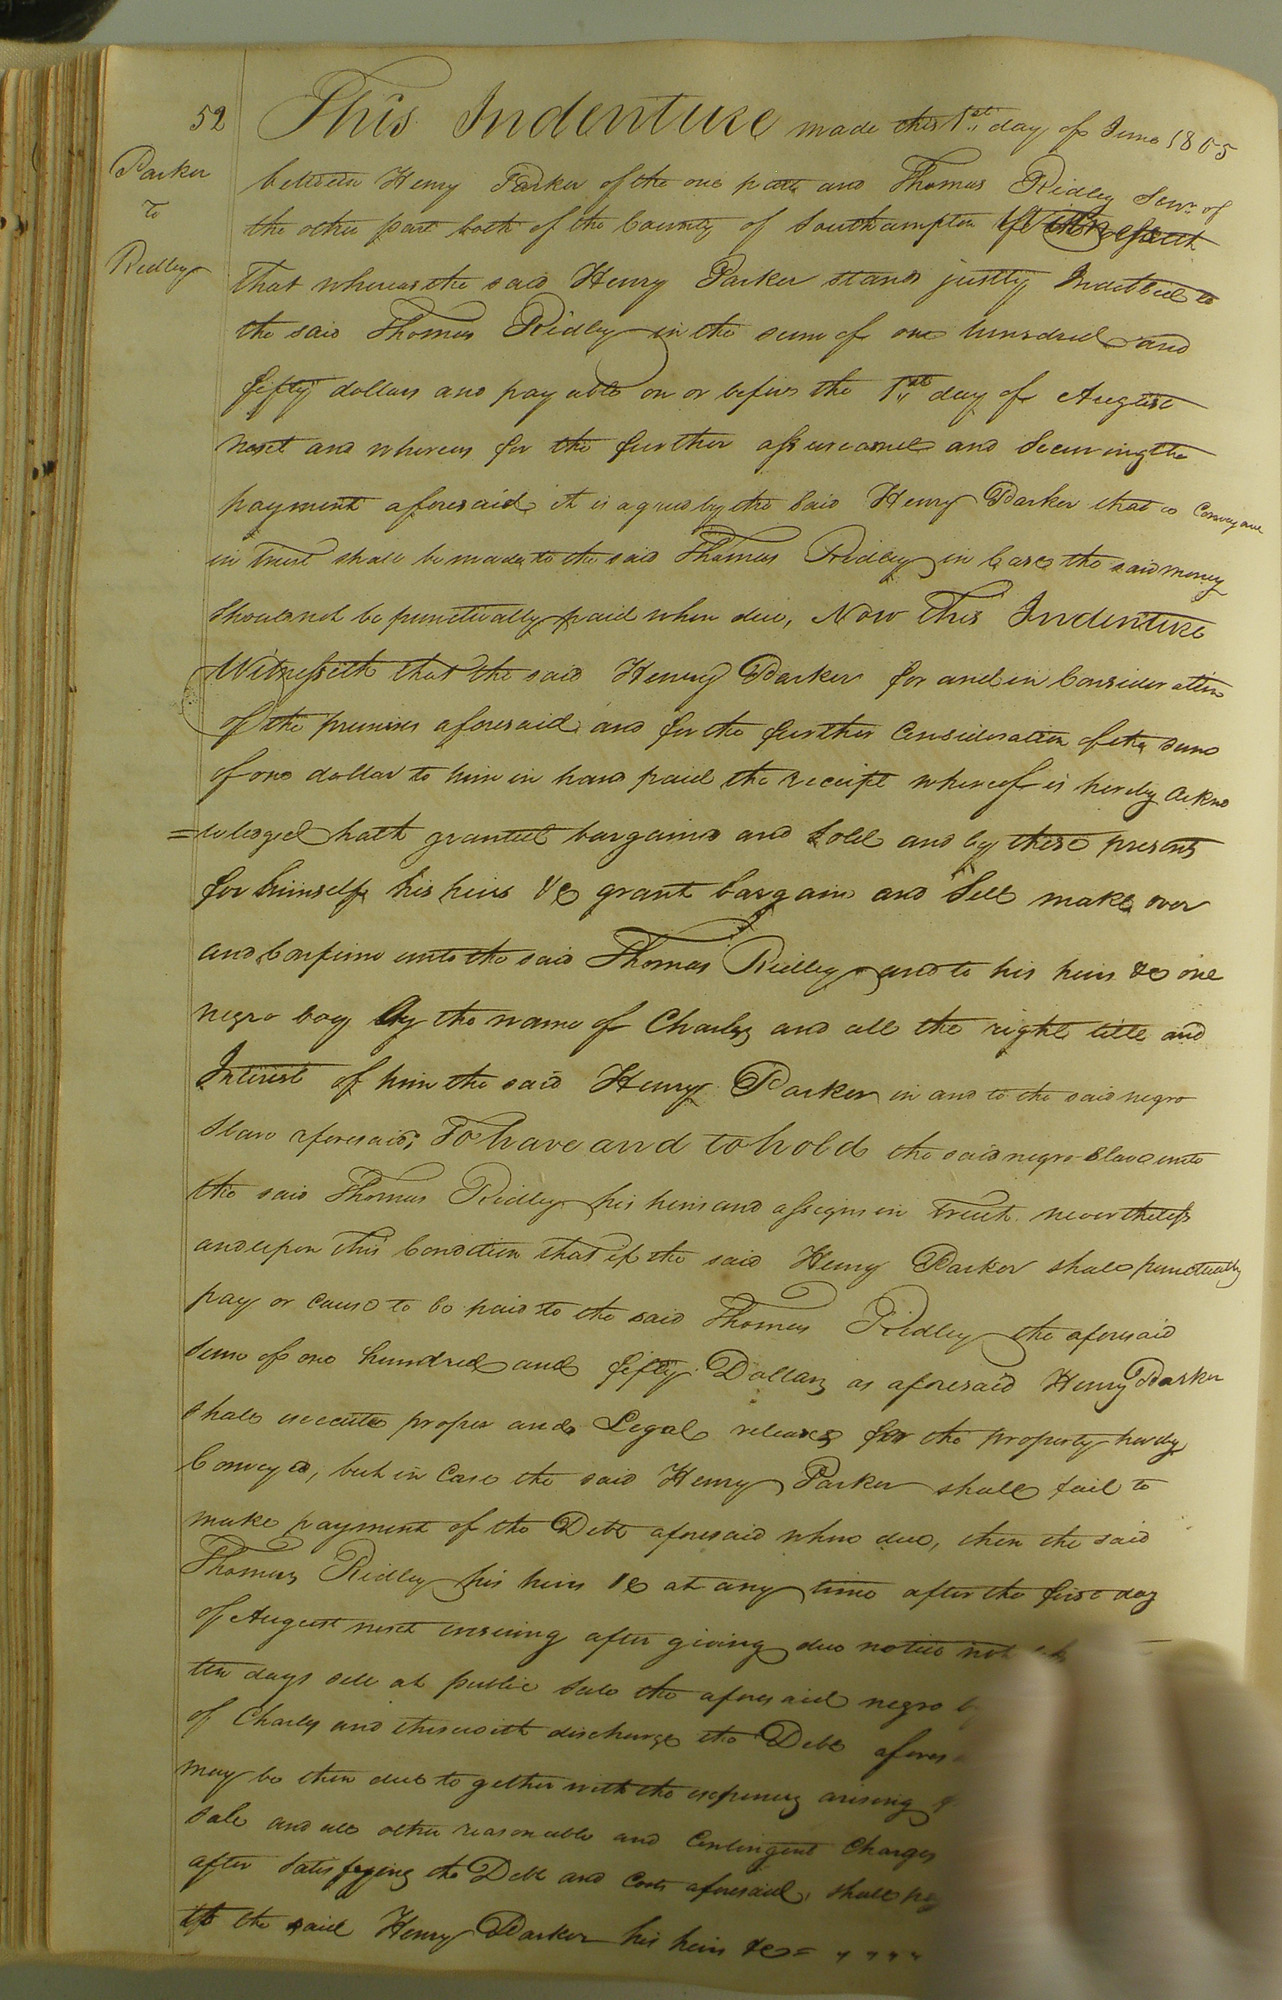 52
Parker
To
Ridley
This Indenture made this 1st day of June 1805
between Henry Parker of the one part and Thomas Ridley Senr. of
the other part both of the County of Southampton
That whereas the said Henry Parker stands justly Indebted to
the said Thomas Ridley in the sum of one hundred and
fifty dollars and payable on or before the 1st day of August
next and whereas for the further assurance and Securing the
payment aforesaid it is agreed by the said Henry Parker that a Conveyance
in trust shall be made to the said Thomas Ridley in Case the said money
should not be punctually paid when due, Now This Indenture
Witnesseth that the said Henry Parker for and in Consideration
of the premises aforesaid and for the further Consideration of the sum
of one dollar to him in hand paid the receipt whereof is hereby Ackno
=wledged hath granted bargained and Sold and by these presents
for himself his heirs &c grant bargain and Sell make over
and Confirm unto the said Thomas Ridley and to his heirs &c one
negro boy by the name of Charles and all the right title and
Interest of him the said Henry Parker in and to the said negro
Slave aforesaid, To have and to hold the said negro Slave unto
the said Thomas Ridley his heirs and assigns in trust nevertheless
and upon this Condition that if the said Henry Parker shall punctually
pay or cause to be paid to the said Thomas Ridley the aforesaid
Sum of one hundred and fifty Dollars as aforesaid Henry Parker
shall execute proper and Legal releases for the property hereby
Conveyed, but in Case the said Henry Parker shall fail to
make payment of the Debt aforesaid when due, then the said
Thomas Ridley his heirs &c at any time after the first day
of August next ensuing after giving due notice not
ten days sell at public Sale the aforesaid negro
of Charles and therewith discharge the Debt
may be then due together with the expences arising
sale and all other reasonable and Contingent Charges
after Satisfying the Debt and Costs aforesaid, shall
to the said Henry Parker his heirs &c = " " " "